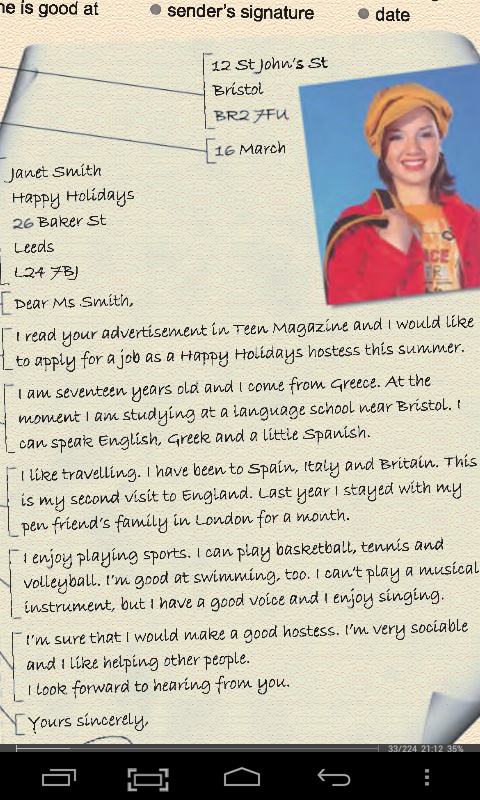 ne is good at
sender's signature
date
12 St John's St
Bristol
BR2 7FU
16 March
Janet Smith
Happy Holidays
26 Baker St
Leeds
L24 7BJ
Dear Ms Smith,
I read your advertisement in Teen Magazine and I would like
to apply for a job as a Happy Holidays hostess this summer.
I am seventeen years old and I come from Greece. At the
moment I am studying at a language school near Bristol. I
can speak English, Greek and a little Spanish.
I like travelling. I have been to Spain, Italy and Britain. This
is my second visit to England. Last year I stayed with my
pen friend's family in London for a month.
I enjoy playing sports. I can play basketball, tennis and
volleyball. I'm good at swimming, too. I can't play a musical
instrument, but I have a good voice and I enjoy singing.
I'm sure that I would make a good hostess. I'm very sociable
and I like helping other people.
I look forward to hearing from you.
Yours sincerely,
33/224 21:12 35%